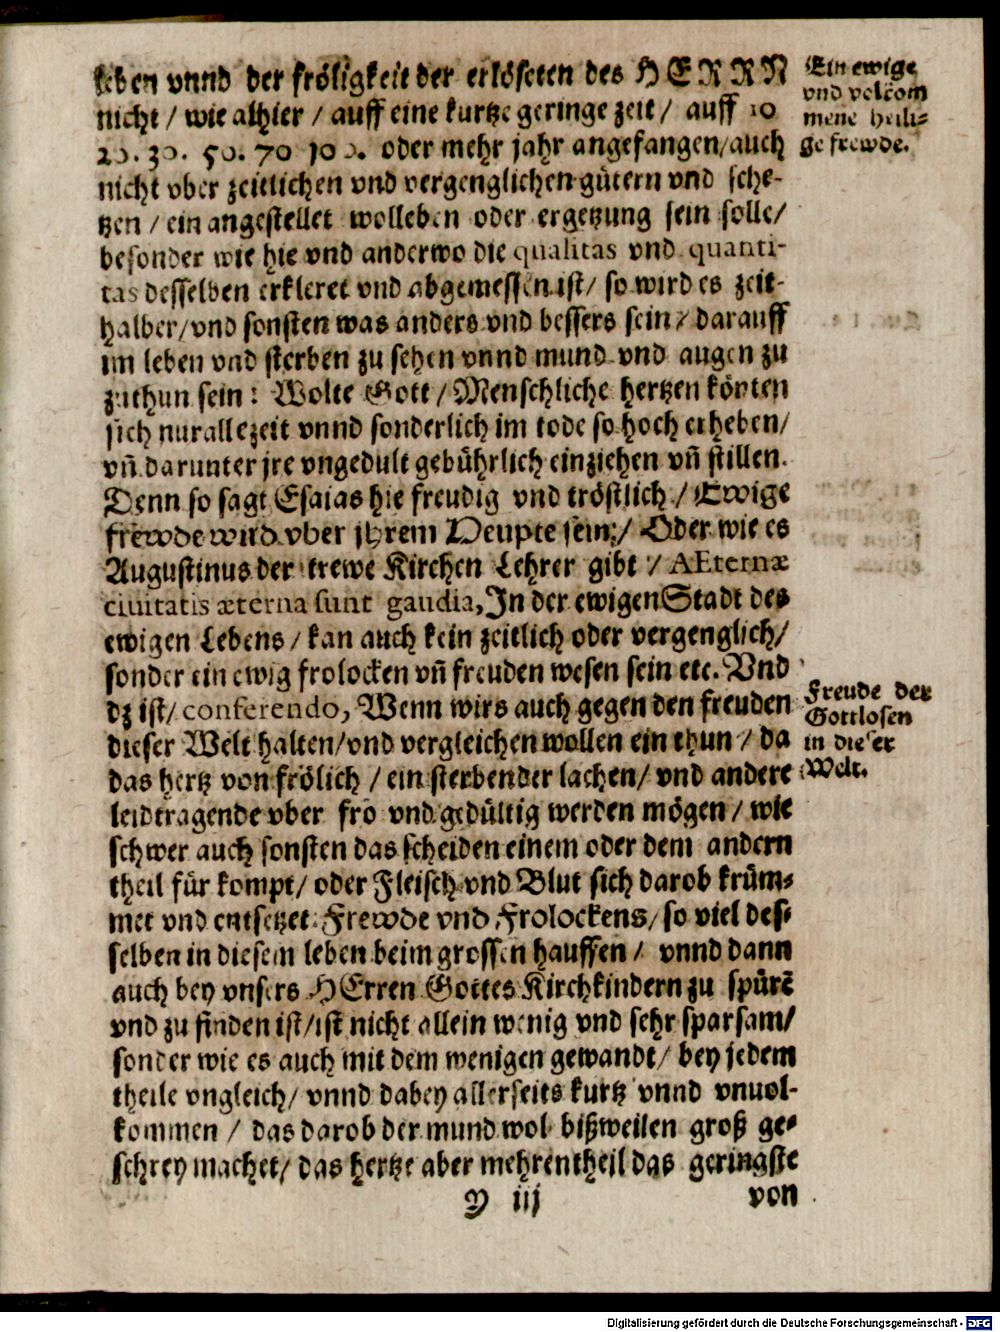 leben vnnd der fröligkeit der erlöseten des HERRN
nicht / wie alhier / auff eine kurtze geringe zeit / auff 10
20. 30. 50. 70 100. oder mehr jahr angefangen/auch
nicht vber zeitlichen vnd vergenglichen gütern vnd sche-
tzen / ein angestellet wolleben oder ergetzung sein solle/
besonder wie hie vnd anderwo die qualitas vnd quanti-
tas desselben erkleret vnd abgemessen ist/ so wird es zeit-
halber/vnd sonsten was anders vnd bessers sein / darauff
im leben vnd sterben zu sehen vnnd mund vnd augen zu
zuthun sein: Wolte Gott / Menschliche hertzen könten
sich nur allezeit vnnd sonderlich im tode so hoch erheben/
vñ darunter jre vngedult gebührlich einziehen vñ stillen.
Denn so sagt Esaias hie freudig vnd tröstlich / Ewige
frewde wird vber jhrem Heupte sein / Oder wie es
Augustinus der trewe Kirchen Lehrer gibt / AEternæ
ciuitatis æterna sunt gaudia, In der ewigen Stadt des
ewigen Lebens / kan auch kein zeitlich oder vergenglich/
sonder ein ewig frolocken vñ freuden wesen sein etc. Vnd
dz ist/ conferendo, Wenn wirs auch gegen den freuden
dieser Welt halten/vnd vergleichen wollen ein thun / da
das hertz von frölich / ein sterbender lachen/ vnd andere
leidtragende vber fro vnd gedültig werden mögen / wie
schwer auch sonsten das scheiden einem oder dem andern
theil für kompt/ oder Fleisch vnd Blut sich darob krüm-
met vnd entsetzet. Frewde vnd Frolockens/ so viel des-
selben in diesem leben beim grossen hauffen / vnnd dann
auch bey vnsers HErren Gottes Kirchkindern zu spürẽ
vnd zu finden ist/ist nicht allein wenig vnd sehr sparsam/
sonder wie es auch mit dem wenigen gewandt/ bey jedem
theile vngleich/ vnnd dabey allerseits kurtz vnnd vnuol-
kommen / das darob der mund wol bißweilen groß ge-
schrey machet/ das hertze aber mehrentheil das geringste
Y iij
von
Ein ewige
vnd volkom
mene heili-
ge frewde.
Freude der
Gottlosen
in dieser
Welt.
Digitalisierung gefördert durch die Deutsche Forschungsgemeinschaft - DFG